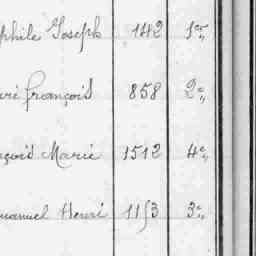 phile Joseph 142 1er
ré françois 858 2e
çois Marie 1512 4e
manuel Henri 1153 3e